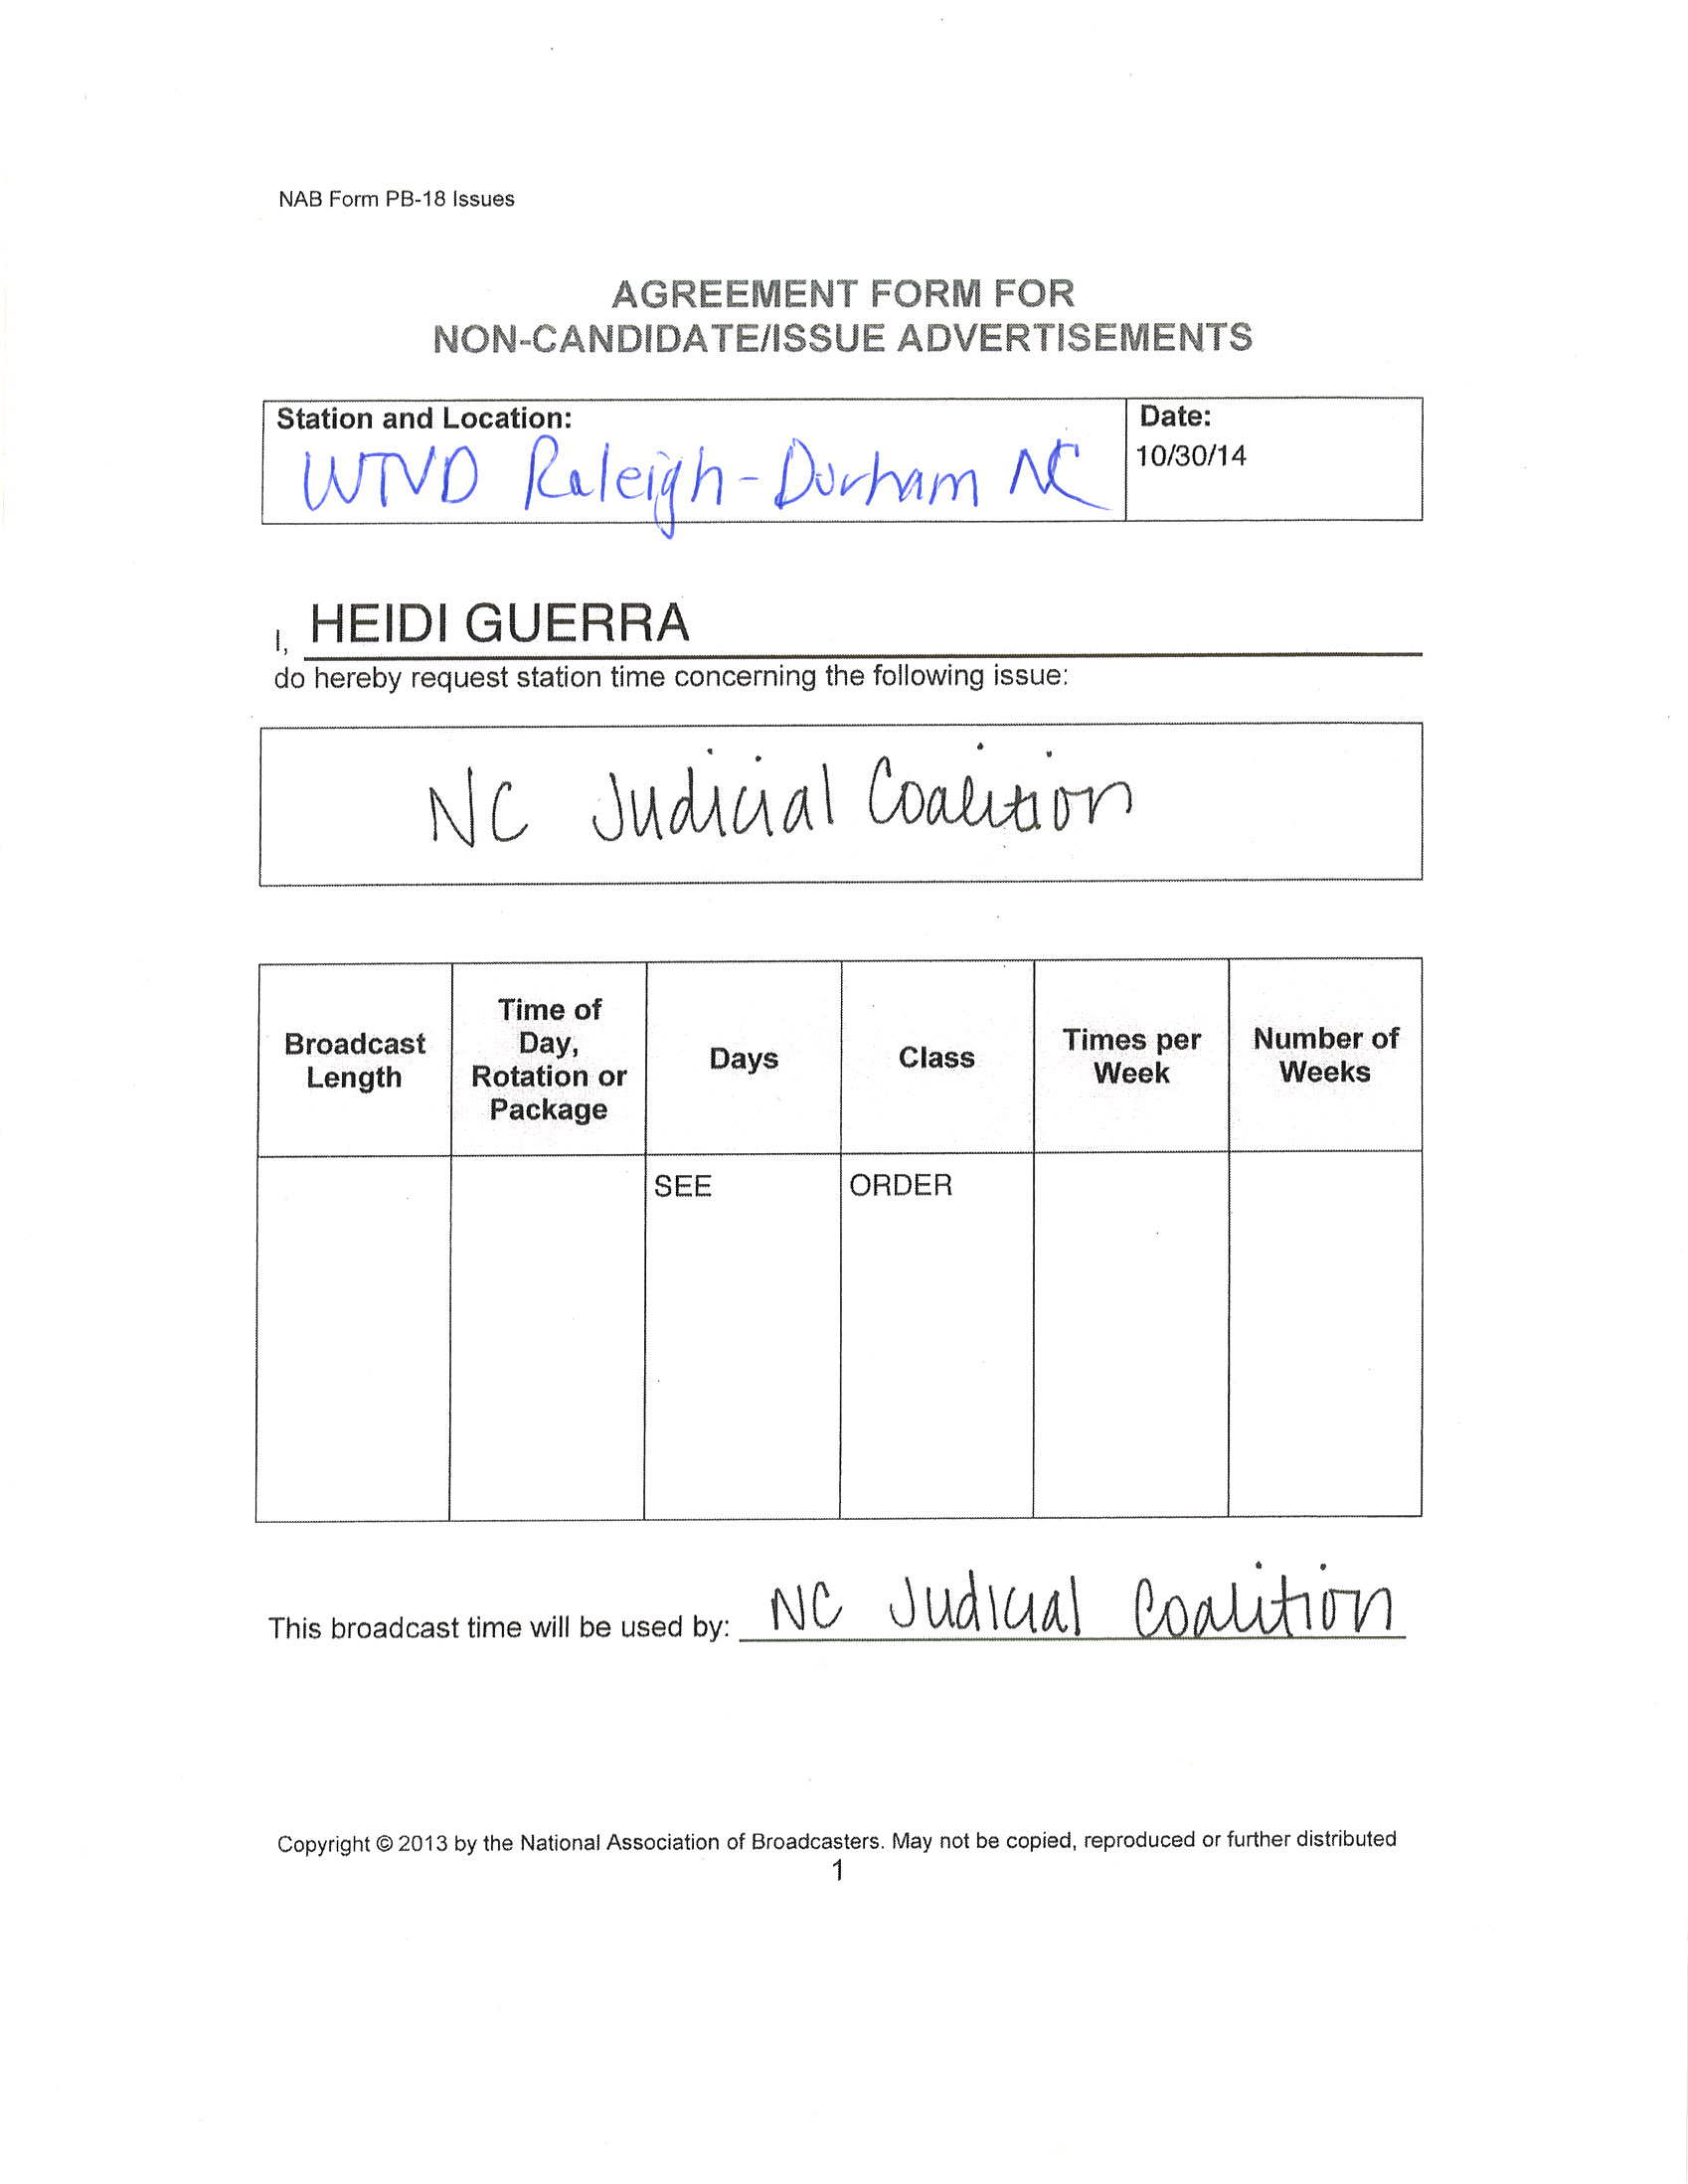 NAB Form PB-18 Issues
AGREEMENT FORM FOR
NON-CANDIDATE/ISSUE ADVERTISEMENTS
Station and Location:
Date:
WTVD Raleigh-Durham NC
10/30/14
I, HEIDI GUERRA
do hereby request station time concerning the following issue:
NC Judicial Coalition
Broadcast Length
Time of Day, Rotation or Package
Days
Class
Times per Week
Number of Weeks
SEE
ORDER
This broadcast time will be used by: NC Judicial Coalition
Copyright © 2013 by the National Association of Broadcasters. May not be copied, reproduced or further distributed
1